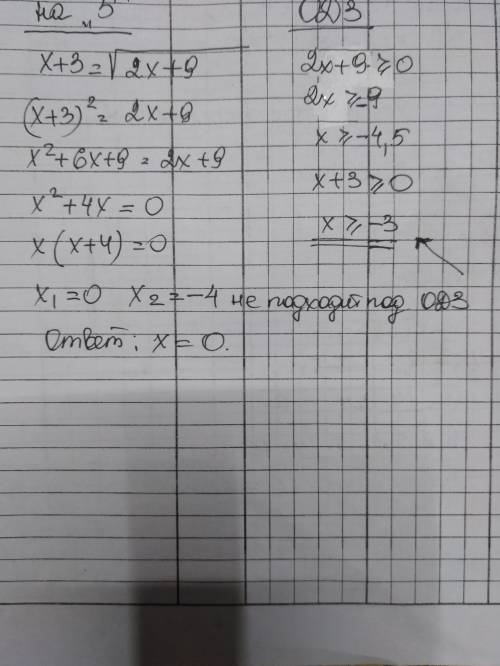 на „5"
x+3=√2x+9
(x+3)²= 2x+9
x²+6x+9=2x+9
x²+4x=0
x(x+4)=0
x₁=0 x₂=-4 не подходит под ОДЗ
Ответ: x=0.
ОДЗ
2x+9≥0
2x≥-9
x≥-4,5
x+3≥0
x≥-3